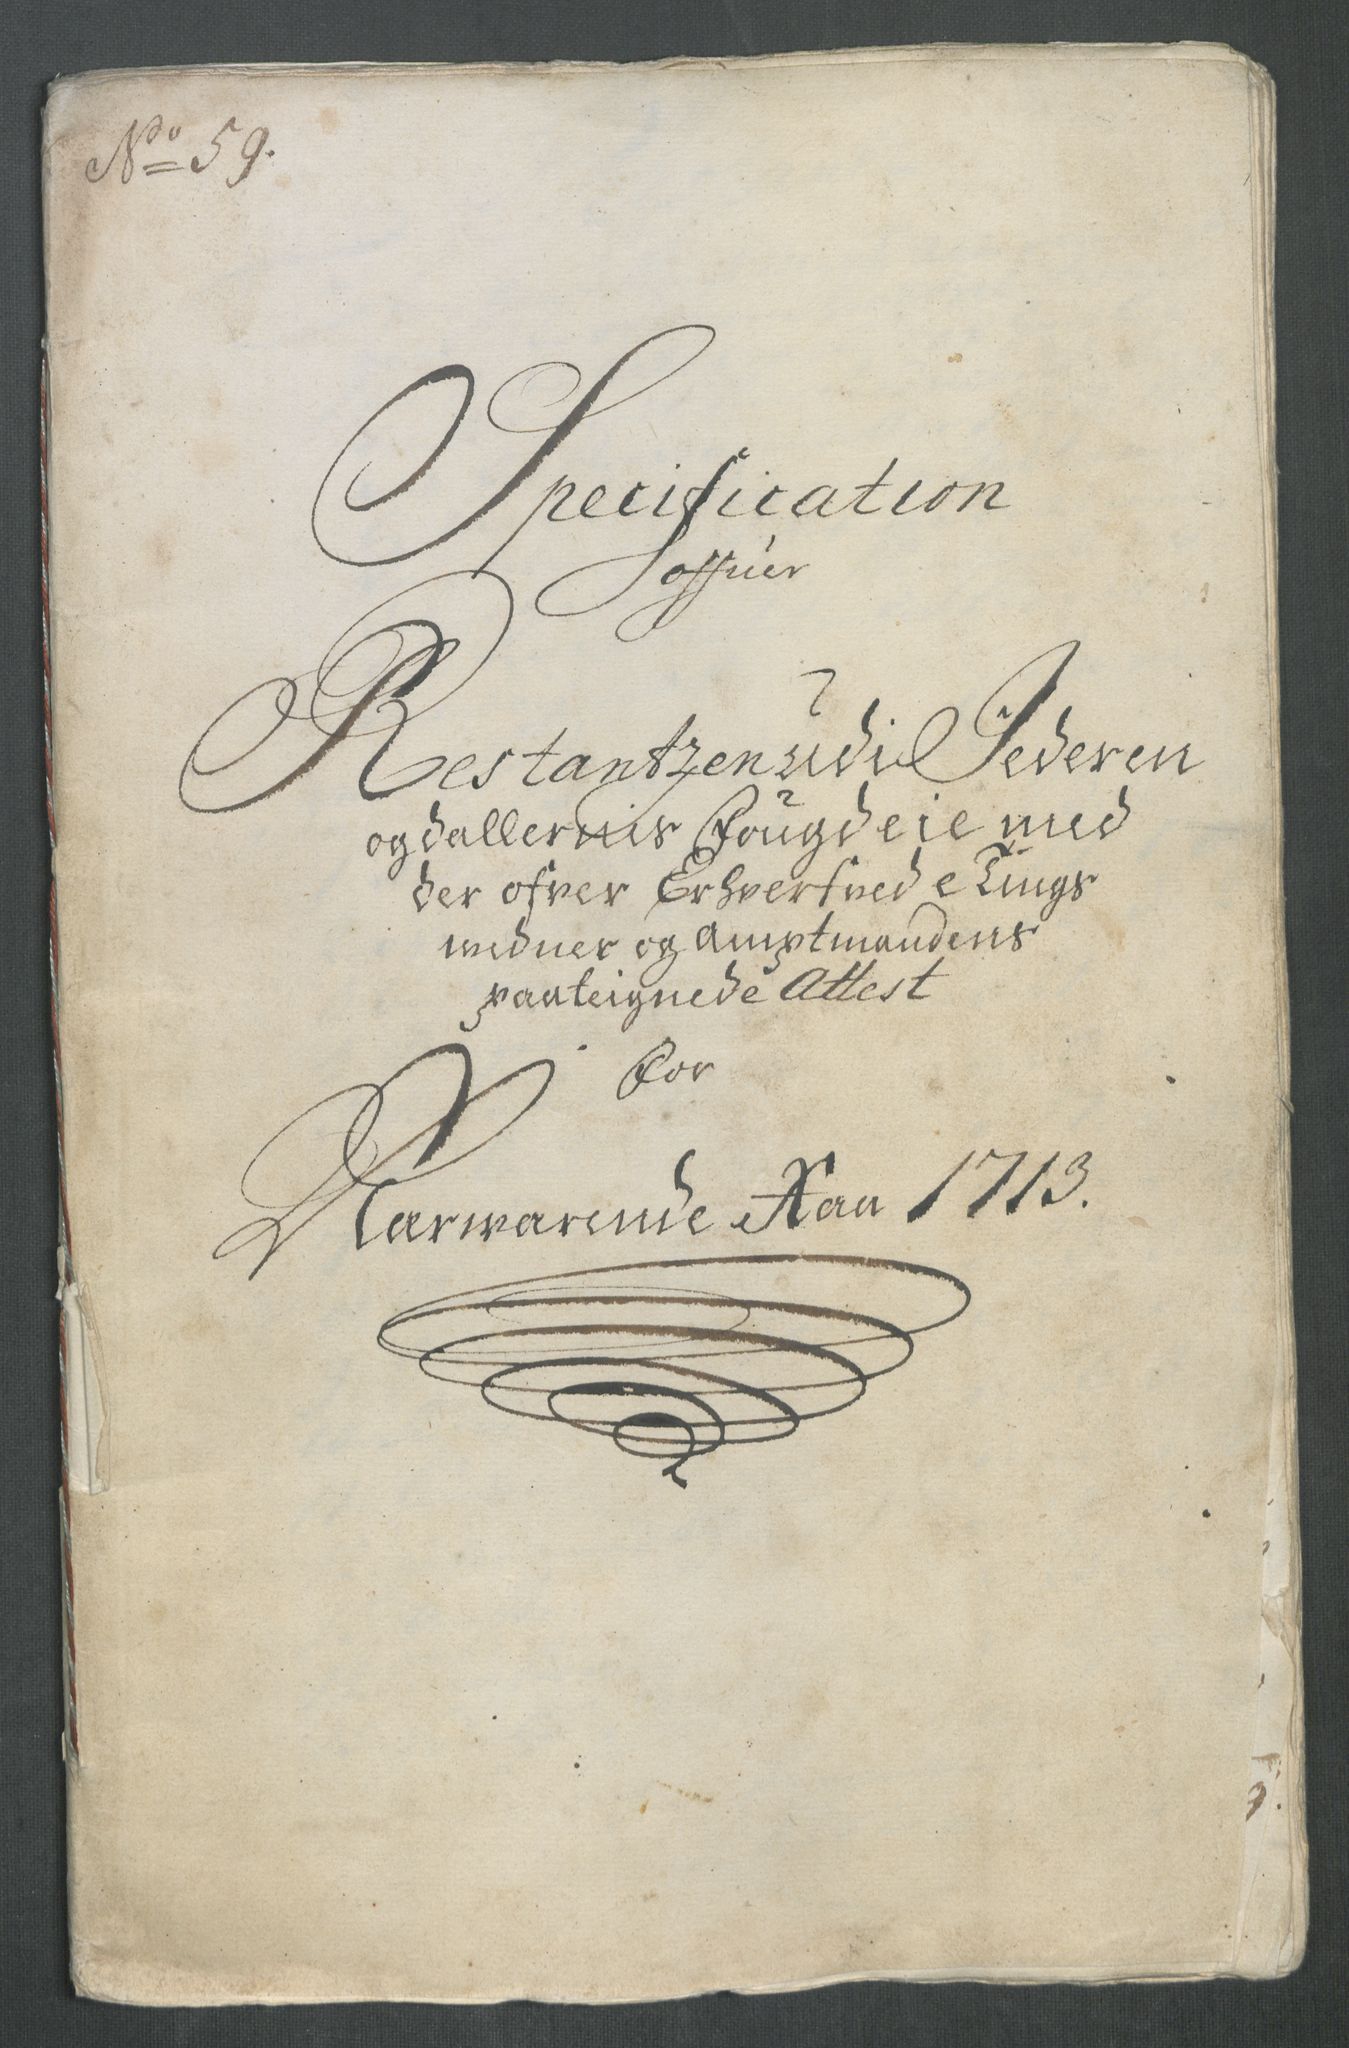 No 59.
Specification
offuer
Restantzen udi Jederen
og dallernis Fougdeie med
der ofver Erhverfvede Tings
widner og Amptmandens
paateignede Attest
For
Nærwærende Aar 1713.